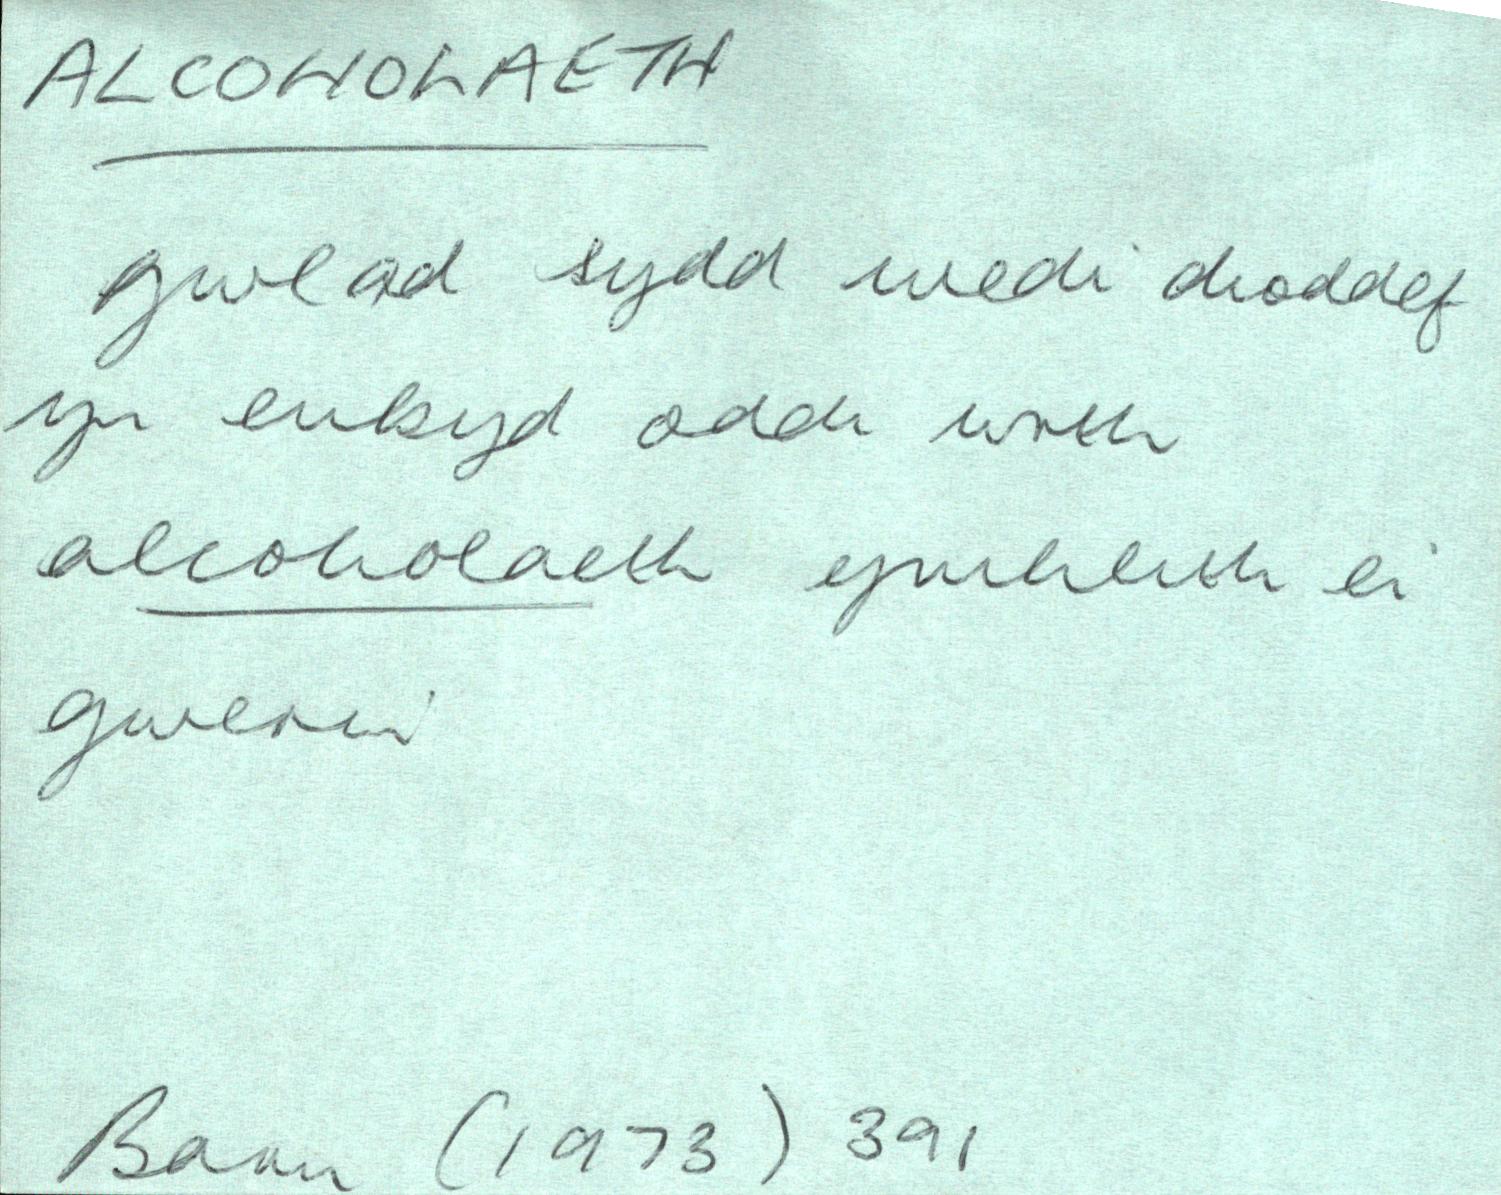 ALCOHOLAETH
gwlad sydd wedi dioddef
yn enbyd oddi wrth
alcoholaeth ymhlith ei
gwerin
Barn (1973) 391